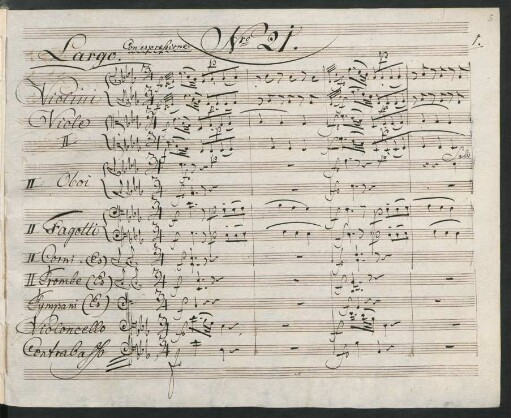 5
Largo. Con espressione Nro 21. 1.
Violini
Viole
II
II Oboi
II Fagotti
II Corni
II Trombe
Tympani
Violoncello
Contrabasso